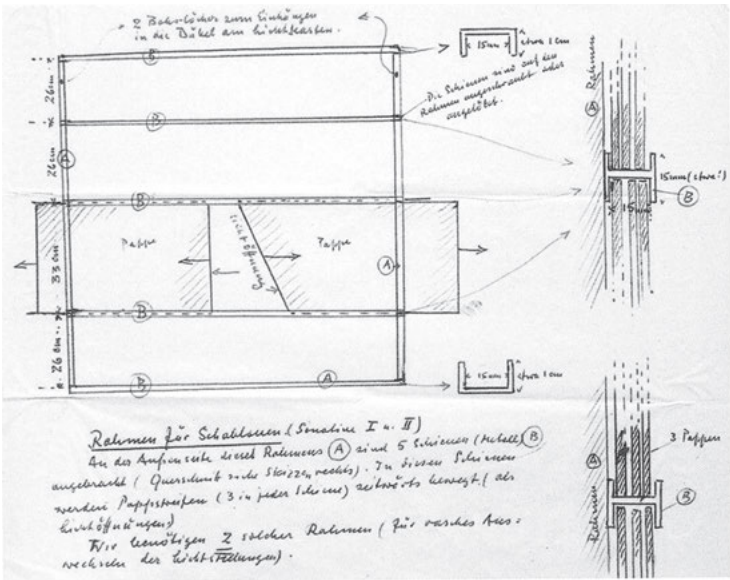 2 Bohrlöcher zum Einhängen
in die Dübel am Lichtkasten.
B
15mm
etwa 1cm
Die Schienen sind auf den
Rahmen angeschraubt oder
angelötet.
26cm
B
A
26cm
B
Pappe
Lichtöffnung
Pappe
33cm
A
B
26cm
B
A
15mm
etwa 1cm
Rahmen
A
15mm (etwa!)
B
15mm
3 Pappen
A
B
Rahmen
Rahmen für Schablonen (Sonatine I u. II)
An der Außenseite dieses Rahmens A sind 5 Schienen (Metall) B
angebracht (Querschnitt siehe Skizzen rechts). In diesen Schienen
werden Pappstreifen (3 in jeder Schiene) seitwärts bewegt. (als
Lichtöffnungen)
Wir benötigen 2 solcher Rahmen (für rasches Aus=
wechseln der Lichtstellungen).